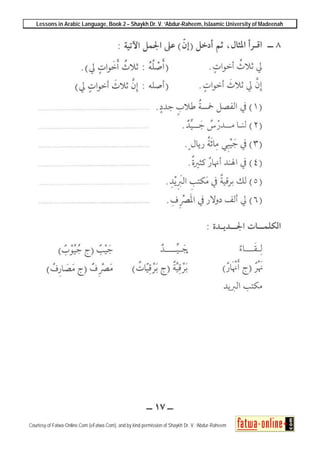 Lessons in Arabic Language, Book 2 – Shaykh Dr. V. 'Abdur-Raheem, Islaamic University of Madeenah
٨ ــ اقـرأ المثال، ثم أدخل (إنّ) على الجمل الآتية :
لي ثلاثُ أخواتٍ. (أَصْلُهُ : ثلاثُ أَخَوَاتٍ لي).
إنَّ لي ثلاثَ أخواتٍ. (أصله : إنَّ ثلاثَ أخواتٍ لي)
(١) في الفصل خمـسةُ طلابٍ جددٍ.
(٢) لنـا مـدرّسٌ جَـيِّدٌ.
(٣) في جَيْبِـي مِائَةُ ريالٍ.
(٤) في الهند أنهارٌ كثيرةٌ.
(٥) لك برقيةٌ في مَكتبِ البَرِيْدِ.
(٦) لي ألف دولارٍ في المَصْرِفِ.
الكلمــات الجــديـدة :
لِـقَــاءٌ جَـيِّــدٌ جَيْبٌ (ج جُيُوْبٌ)
نَهْرٌ (ج أَنْهَارٌ) بَرْقِيَّةٌ (ج بَرْقِيَّاتٌ) مَصْرِفٌ (ج مَصَارِفُ)
مكتب البريد
ــ ١٧ ــ
Courtesy of Fatwa-Online.Com (eFatwa.Com), and by kind permission of Shaykh Dr. V. 'Abdur-Raheem
fatwa-online.com